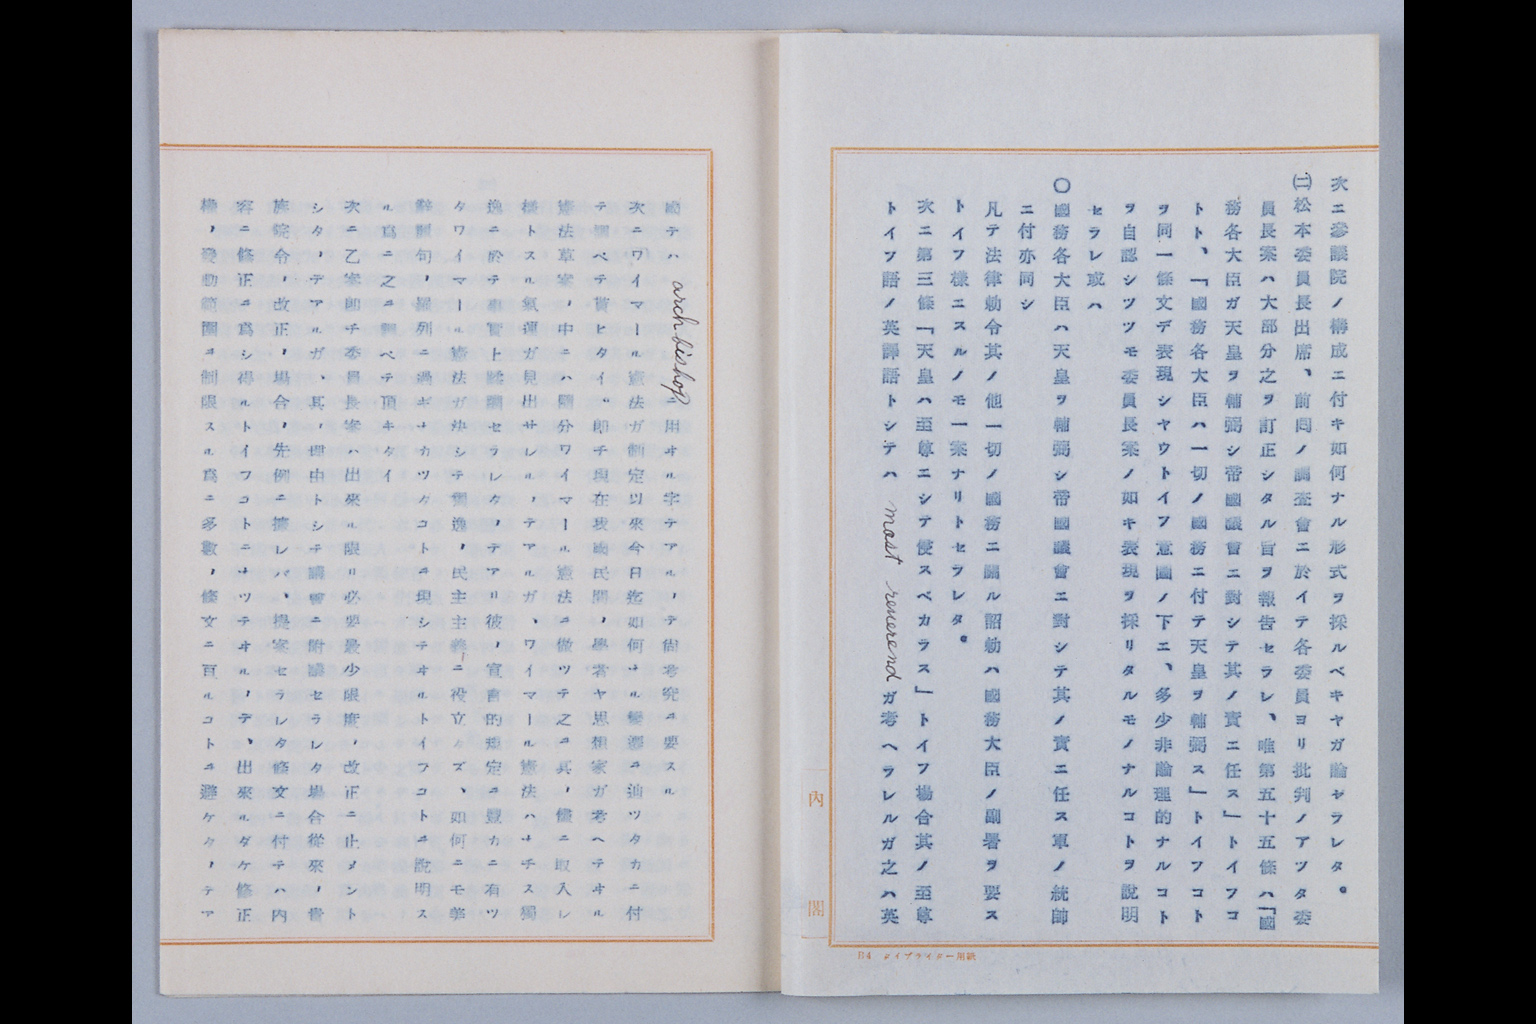 次ニ参議院ノ構成ニ付キ如何ナル形式ヲ採ルベキヤガ論ゼラレタ。
㈡松本委員長出席、前囘ノ調査會ニ於イテ各委員ヨリ批判ノアツタ委
員長案ハ大部分之ヲ訂正シタル旨ヲ報告セラレ、唯第五十五條ハ「國
務各大臣ガ天皇ヲ輔弼シ帝國議會ニ對シテ其ノ責ニ任ス」トイフコ
ト、「國務各大臣ハ一切ノ國務ニ付テ天皇ヲ輔弼ス」トイフコト
ヲ同一條文デ表現シヤウトイフ意圖ノ下ニ、多少非論理的ナルコト
ヲ自認シツツモ委員長案ノ如キ表現ヲ採リタルモノナルコトヲ説明
セラレ或ハ
○國務各大臣ハ天皇ヲ輔弼シ帝國議會ニ對シテ其ノ責ニ任ス軍ノ統帥
ニ付亦同シ
凡テ法律勅令其ノ他一切ノ國務ニ關ル詔勅ハ國務大臣ノ副署ヲ要ス
トイフ樣ニスルノモ一案ナリトセラレタ。
次ニ第三條「天皇ハ至尊ニシテ侵スベカラス」トイフ場合其ノ至尊
トイフ語ノ英譯語トシテハ most reverend ガ考ヘラレルガ之ハ英
內閣
B4 タイプライター用紙
國デハ archbishop ニ用ヰル字デアルノデ尚考究ヲ要スル
次ニワイマール憲法ガ制定以來今日迄如何ナル變遷ヲ辿ツタカニ付
テ調ベテ貰ヒタイ。即チ現在我國民間ノ學者ヤ思想家ガ考ヘテヰル
憲法草案ノ中ニハ隨分ワイマール憲法ニ倣ツテ之ヲ其ノ儘ニ取入レ
樣トスル氣運ガ見出サレルノデアルガ、ワイマール憲法ハナチス獨
逸ニ於テ事實ト蹂躙セラレタノデアリ彼ノ宣言的規定ニ豐カニ有ツ
タワイマール憲法ガ決シテ獨逸ノ民主主義ニ役立タズ、如何ニモ美
辭麗句ノ羅列ニ過ギナカツタコトヲ現シテヰルトイフコトヲ説明ス
ル爲ニ之ヲ調ベテ頂キタイ
次ニ乙案即チ委員長案ハ出來ル限リ必要最少限度ノ改正ニ止メント
シタノデアルガ、其ノ理由トシテ議會ニ附議セラレタ場合從來ノ貴
族院令ノ改正ノ場合ノ先例ニ據レバ、提案セラレタ條文ニ付テハ內
容ニ修正ヲ爲シ得ルトイフコトニナツテヰルノデ、出來ルダケ修正
權ノ發動範圍ヲ制限スル爲ニ多數ノ條文ニ亘ルコトヲ避ケタノデア